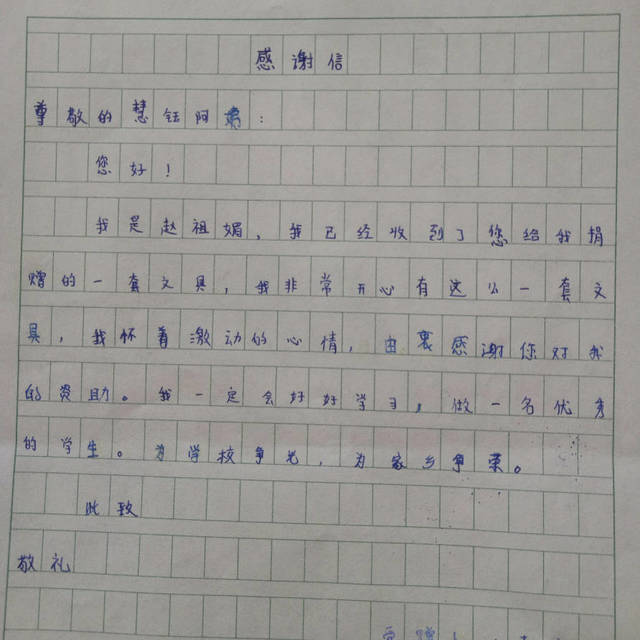 感谢信
尊敬的慧钰阿弟:
您好!
我是赵祖媚,我已经收到了您给我捐
赠的一套文具,我非常开心有这么一套文
具,我怀着激动的心情,由衷感谢您对我
的资助。我一定会好好学习,做一名优秀
的学生。为学校争光,为家乡争荣。
此致
敬礼